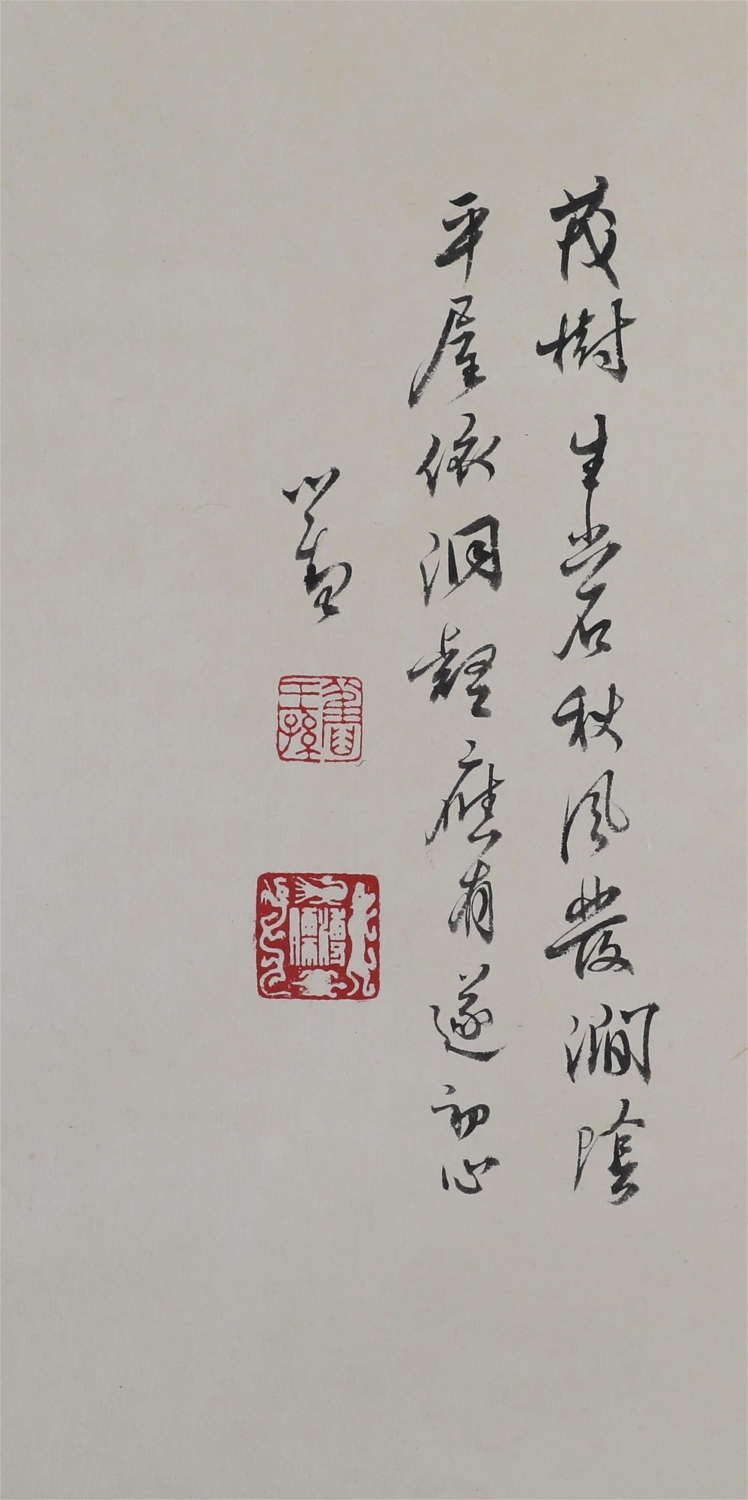 茂樹生石秋風發澗陰
平屋依洞壑應有遂初心
心畬
舊王孫